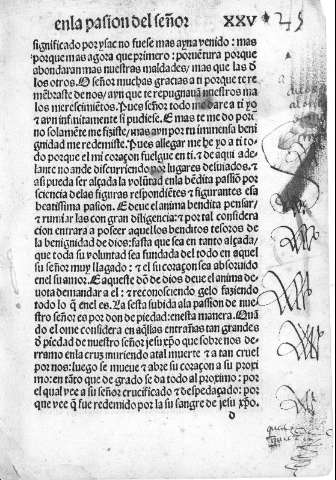 enla pasion del señor XXV
significado por ysac no fuese mas ayna venido : mas
porque mas agora que primero : porvẽtura porque
abondaran mas nuestras maldades / mas que las ð
los otros. O señor muchas gracias a ti porque te m̃
mẽbraste de nos / ayn que te repugnavã nuestros ma
los merescimiẽtos. Pues señor todo me darea a ti yo
τ ayn infinitamente si pudiese. E mas te me do porq̃
no solamẽte me fiziste / mas ayn por tu immensa beni
gnidad me redemiste. Pues allegar me he yo a ti to
do porque el mi coraçon fuelgue en ti. τ de aqui ade
lante no ande discurriendo por lugares desuiados. τ
asi pueda ser alçada la volũtad enla bẽdita pasiõ por
sciencia delas figuras respondiẽtes τ figurantes esa
beatissima pasion. E deue el anima bendita pensar /
τ rumiar las con gran diligencia : τ por tal considera
cion entrara a poseer aquellos benditos tesoros de
la benignidad de dios : fasta que sea en tanto alçada /
que toda su voluntad sea fundada del todo en aquel
su señor muy llagado : τ el su coraçon sea absoruido
en el su amor. E aqueste dõ de dios deue el anima de
uota demandar a el : τ reconosciendo gelo faziendo
todo lo q̃ enel es. La sesta subida ala pasion de nue
stro señor es por don de piedad : enesta manera. Quã
do el ome considera en aq̃llas entrañas tan grandes
ð piedad de nuestro señor jesu xp̃o que sobre nos de
rramo enla cruz muriendo atal muerte τ a tan cruel
por nos : luego se mueve τ abre su coraçon a su proxi
mo : en tãto que de grado se da todo al proximo : por
el qual vee a su señor crucificado τ despedaçado : por
que vee q̃ fue redemido por la su sangre de jesu xp̃o.
d